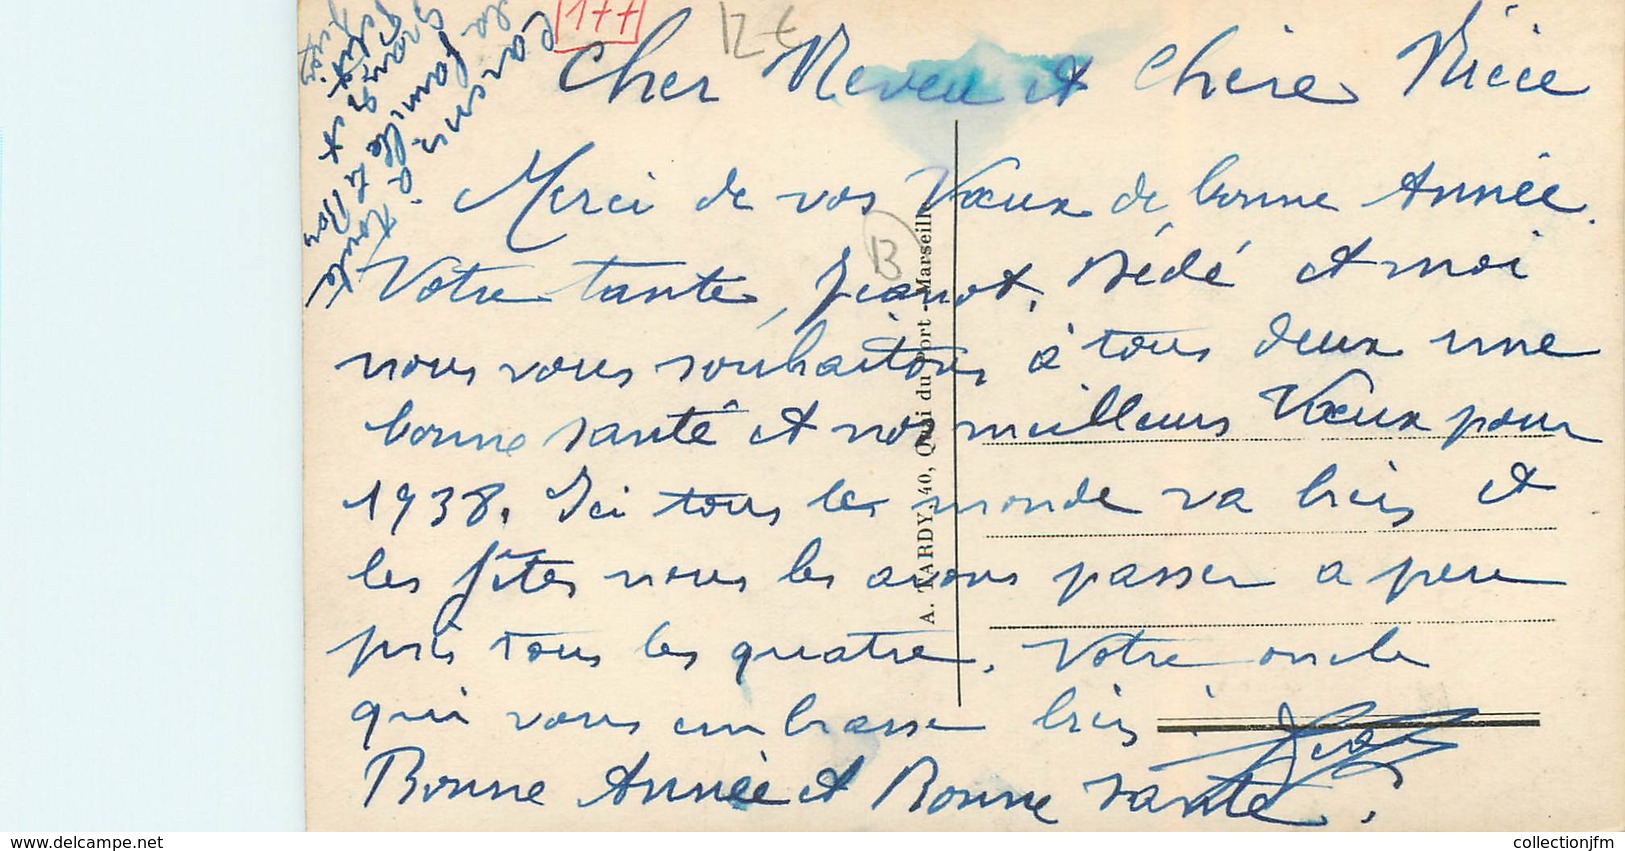 177
12 €
Cher Neveu et Chère Nièce
Merci de vos Vœux de bonne Année.
Votre tante, Jeanot, Dédé et moi
nous vous souhaitons à tous deux une
bonne santé et nos meilleurs Vœux pour
1938. Ici tous le monde va bien et
les fêtes nous les avons passer a peu
près tous les quatre. Votre oncle
qui vous embrasse bien
Bonne Année et Bonne santé.
la famille
B
A. TARDY, 40, Quai du Port - Marseille
collectionjfm